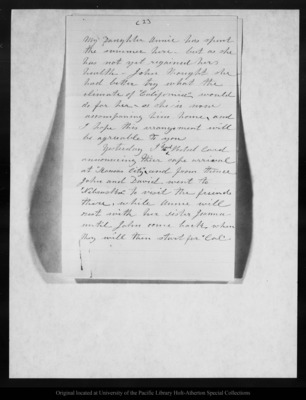 (23)
My Daughter Annie has spent
the summer here. but as she
has not yet regained her
health - John thought she
had better try what the
climate of California would
do for her - as she is now
accompaning him home, and
I hope this arrangement will
be agreeable to you
Yesterday I got Postal Card
announcing their safe arrival
at Kansas City, and from thence
John and David went to
Nebraska to visit the friends
there, while Annie will
rest with her sister Joanna
until John come back, when
they will then start for Cal.
Original located at University of the Pacific Library Holt-Atherton Special Collections